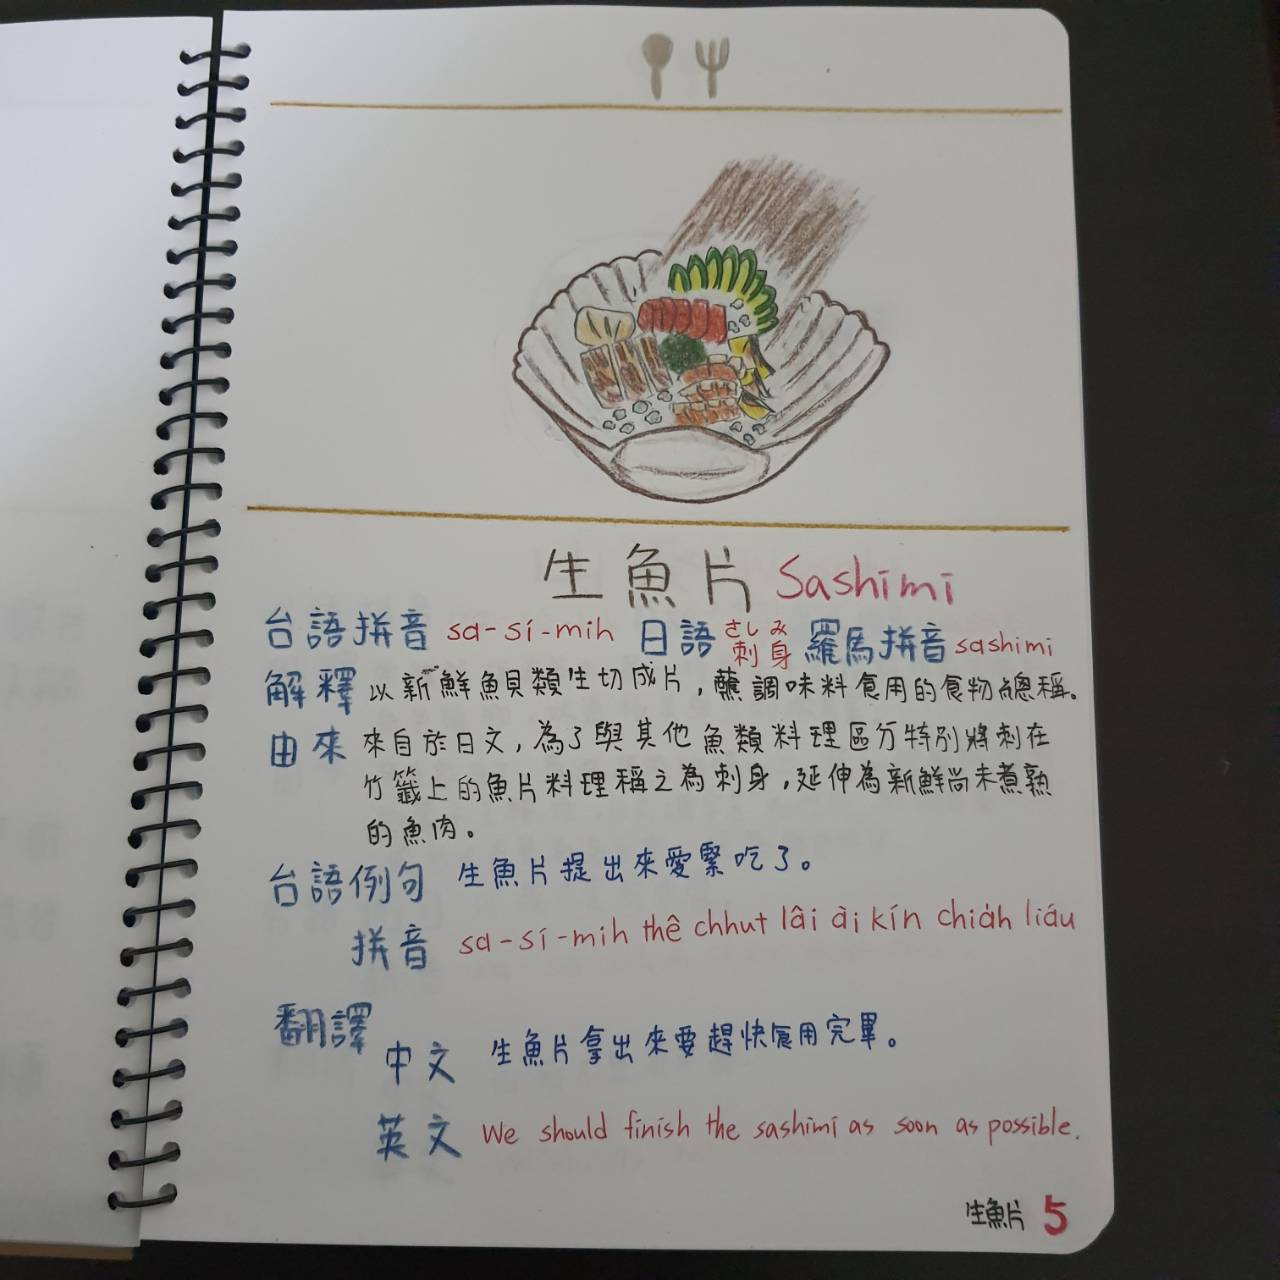 生魚片 Sashimi
台語拼音 sa-sí-mih 日語 刺身 さしみ 羅馬拼音 sashimi
解釋 以新鮮魚貝類生切成片,蘸調味料食用的食物總稱。
由來 來自於日文,為了與其他魚類料理區分特別將刺在
竹籤上的魚片料理稱之為刺身,延伸為新鮮尚未煮熟
的魚肉。
台語例句 生魚片提出來愛緊吃了。
拼音 sa-sí-mih thê chhut lâi ài kín chia̍h liáu
翻譯
中文 生魚片拿出來要趕快食用完畢。
英文 We should finish the sashimi as soon as possible.
生魚片 5